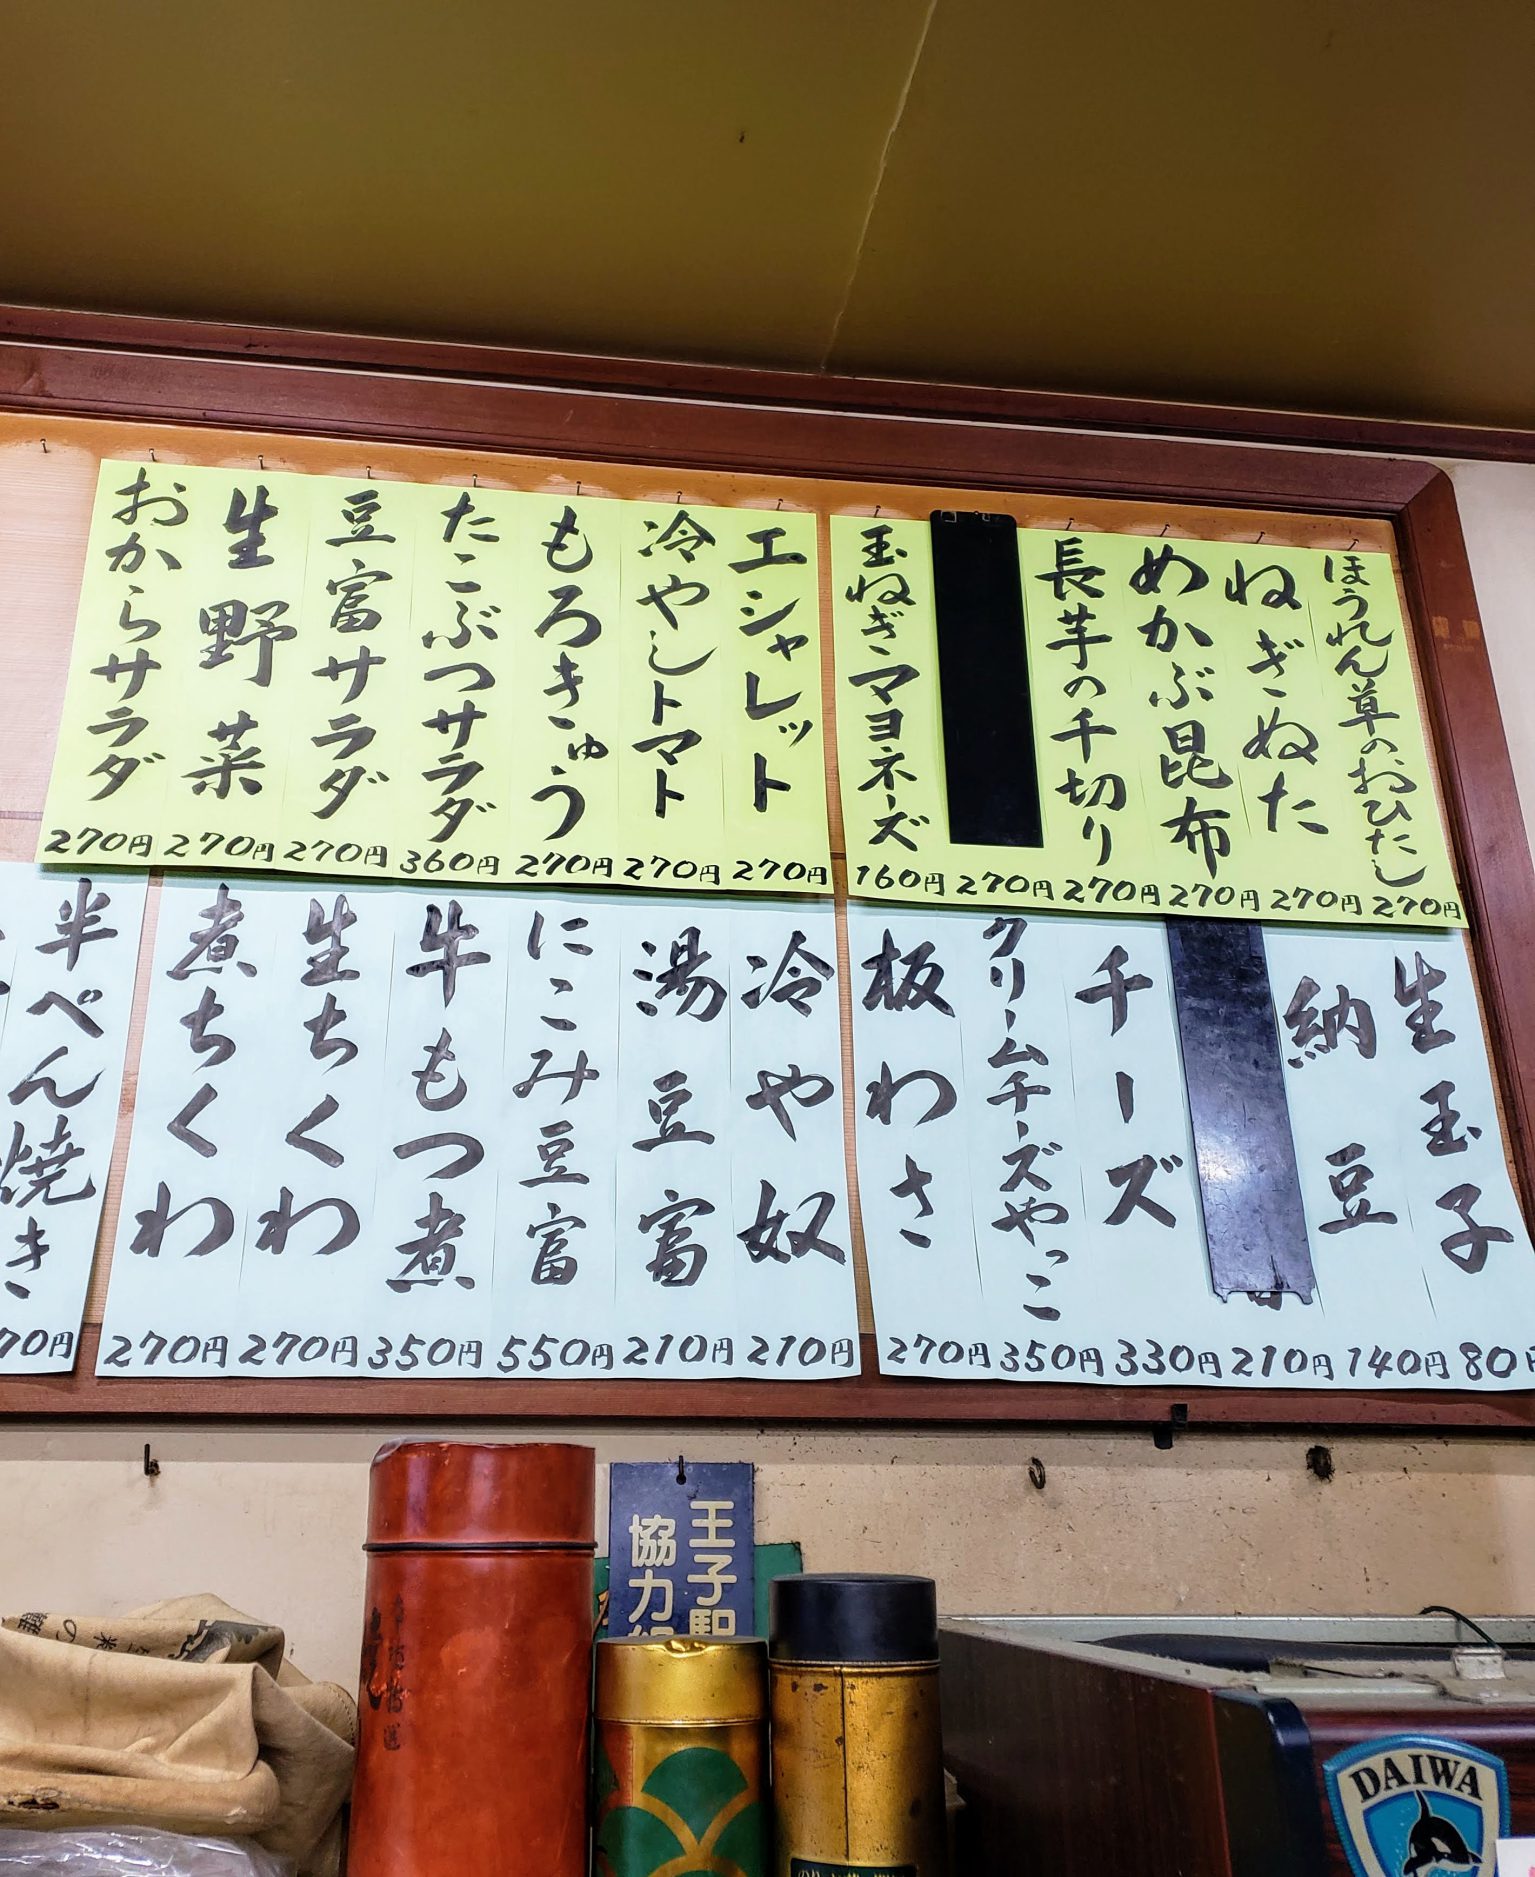 ほうれん草のおひたし 270円
ねぎぬた 270円
めかぶ昆布 270円
長芋の千切り 270円
270円
玉ねぎマヨネーズ 160円
エシャレット 270円
冷やしトマト 270円
もろきゅう 270円
たこぶつサラダ 360円
豆富サラダ 270円
生野菜 270円
おからサラダ 270円
生玉子 80円
納豆 140円
210円
チーズ 330円
クリームチーズやっこ 350円
板わさ 270円
冷や奴 210円
湯豆富 210円
にこみ豆富 550円
牛もつ煮 350円
生ちくわ 270円
煮ちくわ 270円
半ぺん焼き 70円
王子駅
協力
DAIWA